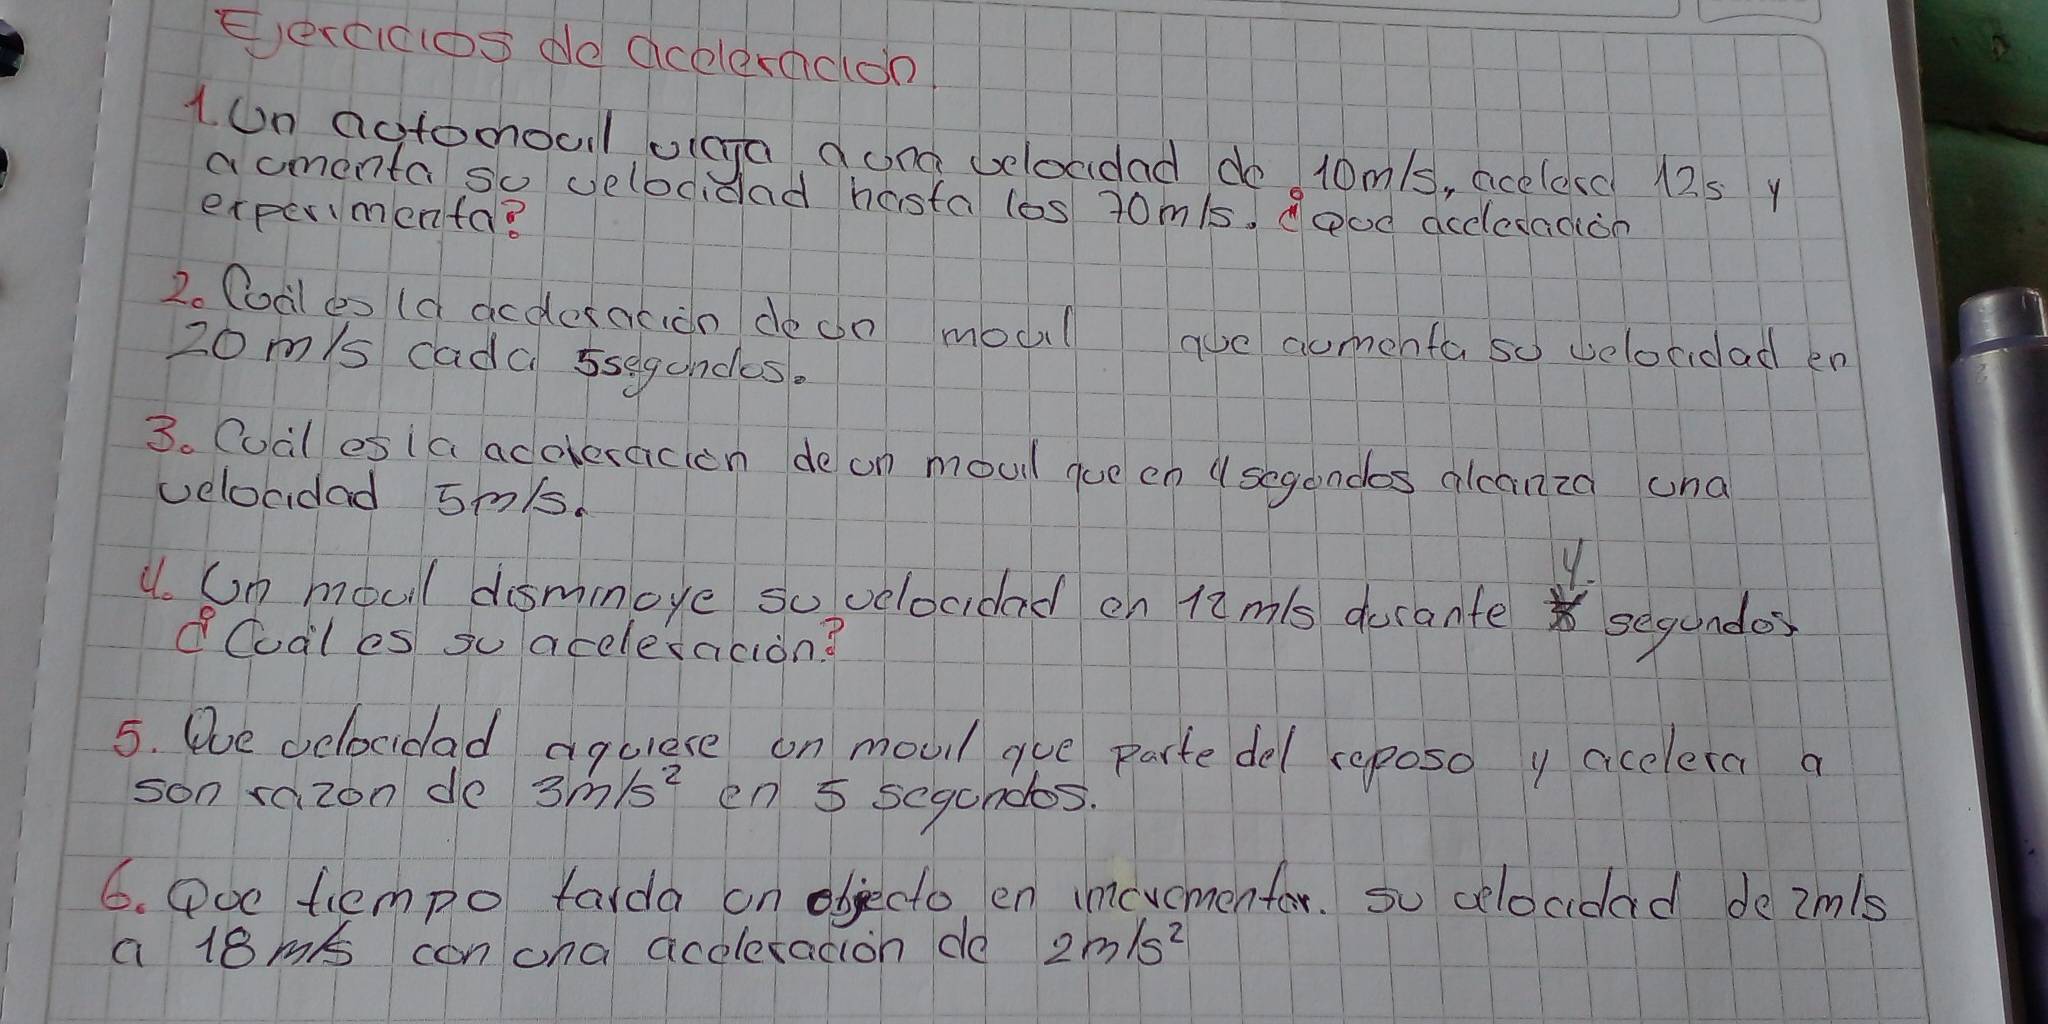 Ejercicios de aceleración.
1. Un automovil viaja a una velocidad de 10m/s, acelera 12s y
aumenta su velocidad hasta los 70m/s. ¿Que aceleración
experimenta?
2. Cuál es la aceleración de un movil que aumenta su velocidad en
20 m/s cada 5 segundos.
3. Cuál es la aceleración de un movil que en 4 segundos alcanza una
velocidad 5m/s.
4. Un movil disminuye su velocidad en 12 m/s durante 4. segundos
¿Cuál es su aceleración?
5. Que velocidad aquiere un movil que parte del reposo y acelera a
son razon de 3m/s² en 5 segundos.
6. Que tiempo tarda un objecto en incrementar. su velocidad de 2m/s
a 18 m/s con una aceleración de 2m/s²